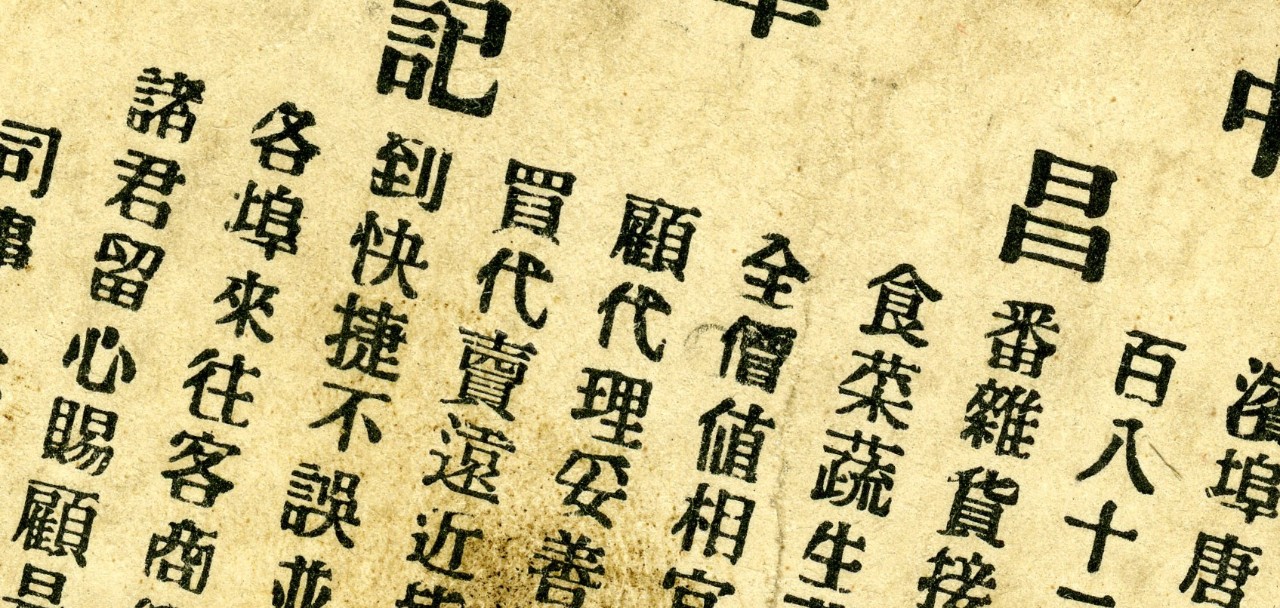 中
濱埠唐
百八十
昌
番雜貨接
食菜蔬生
全價值相宜
顧代理妥善
買代賣遠近
記
到快捷不誤並
各埠來往客商
諸君留心賜顧是
司事